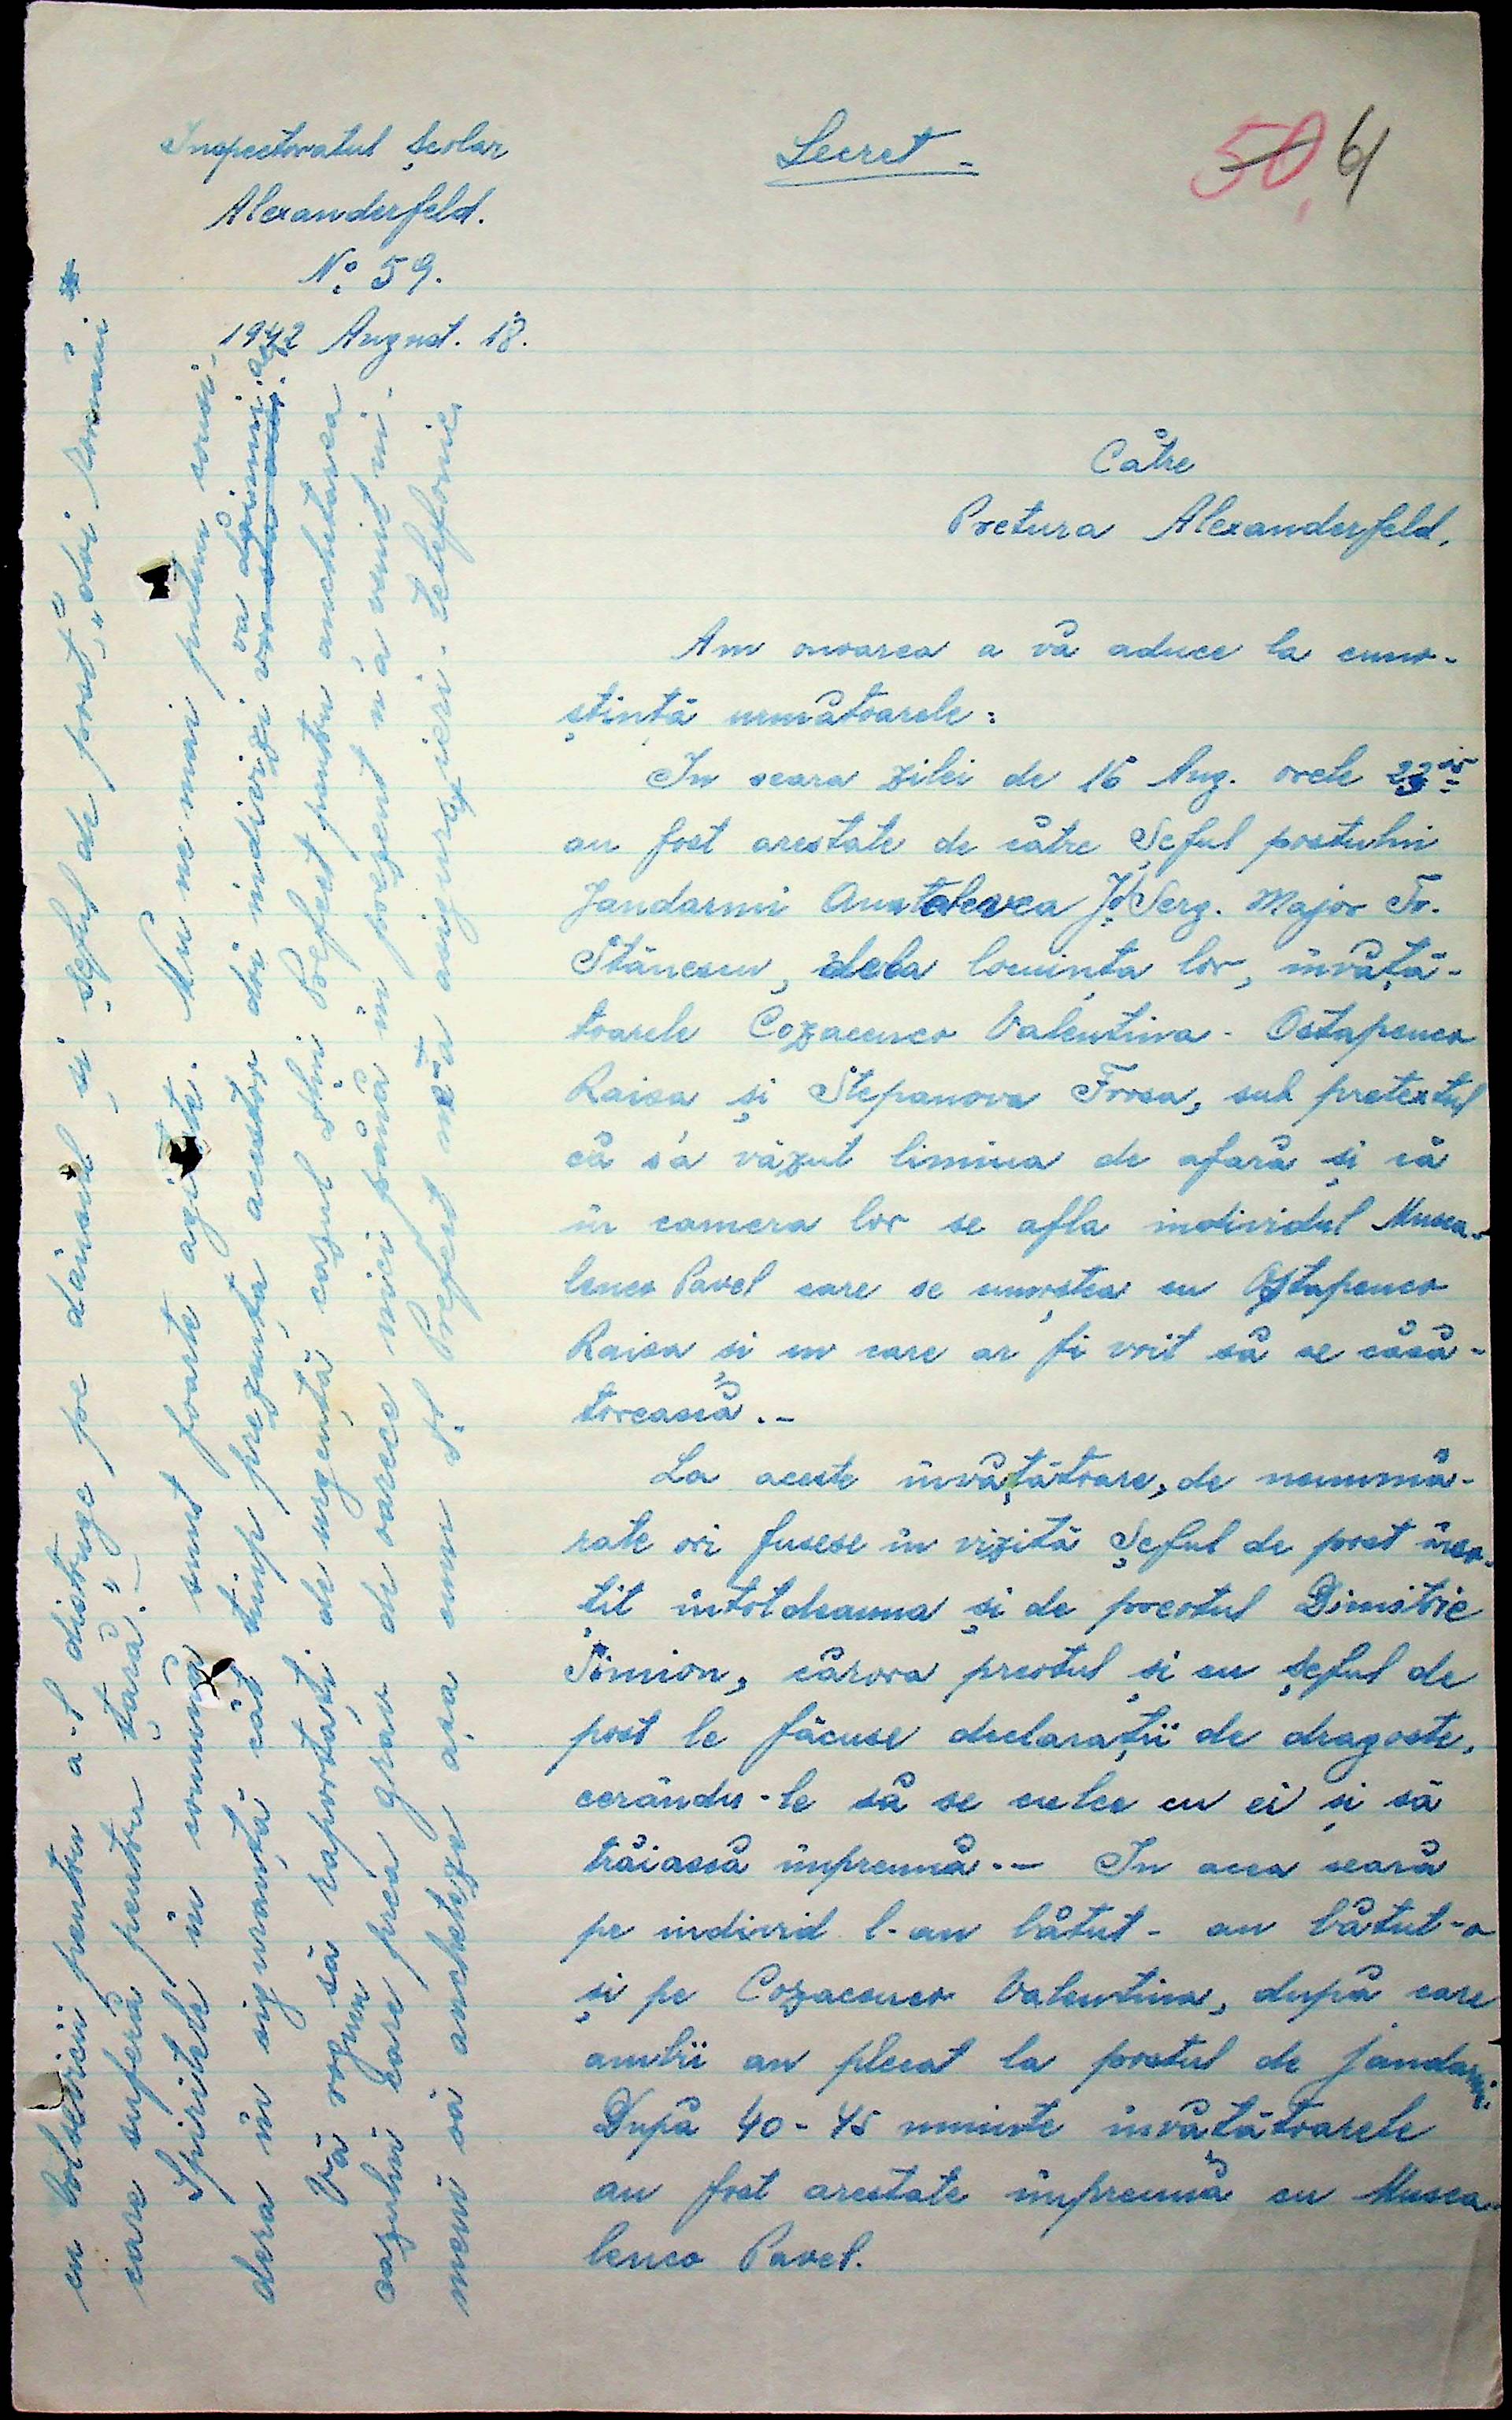 Inspectoratul Școlar
Alexanderfeld.
No. 59.
1942 August. 18.
Secret -
50, 61
Către
Pretura Alexanderfeld,
Am onoarea a vă aduce la cuno-
ștință următoarele:
In seara zilei de 16 Aug. orele 23
au fost arestate de către Șeful postului
Jandarmi Serg. Major Tr.
Stănescu, dela locuința lor, învăță-
toarele Cozacenco Valentina - Ostapenco
Raisa și Stepanova Frosa, sub pretextul
că s'a văzut limina de afară și că
în camera lor se afla individul Musca-
lenco Pavel care se cunoștea cu Ostapenco
Raisa și cu care ar fi voit să se căsă-
torească.-
La aceste învățătoare, de nenumă-
rate ori fusese în vizită Șeful de post înso-
țit întotdeauna și de preotul Dimitrie
Simion, cărora preotul și cu șeful de
post le făcuse declarații de dragoste,
cerându-le să se culce cu ei și să
trăiască împreună.- In acea seară
pe individ l-au bătut - au bătut-o
și pe Cozacenco Valentina, după care
ambii au plecat la postul de jandarmi.
După 40-45 minute învățătoarele
au fost arestate împreună cu Musca-
lenco Pavel.
cu bolșevicii pentru a-l distruge pe dânsul și șeful de post", "doi români
care suferă pentru țară".-
Spiritele în comună sunt foarte agitate. Nu ne mai putem consi-
dera în siguranță cât timp prezența acestor doi indivizi va dăinui aci
Vă rugăm să raportați de urgență cazul Dlui Prefect pentru anchetarea
cazului care prea grav de oarece nici până în prezent n'a venit ni-
meni să ancheteze așa cum Dl. Prefect ne-a asigurat ieri - telefonic.